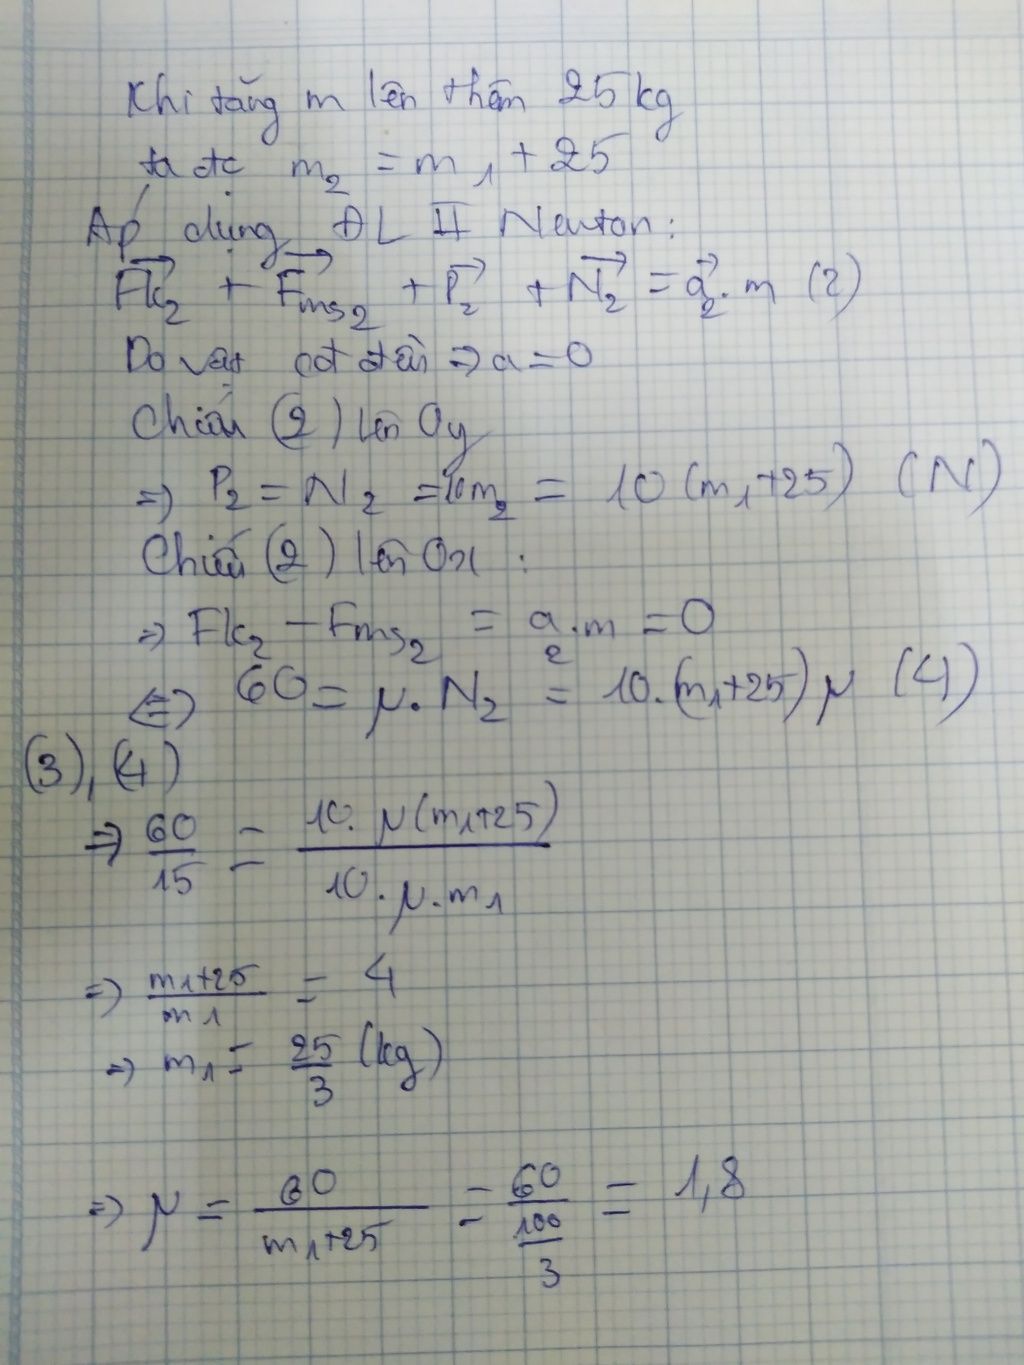 Khi tăng m lên thêm 25kg
ta đc m₂ = m₁ + 25
Áp dụng ĐL II Newton:
Fk₂ + Fms₂ + P₂ + N₂ = a₂.m (2)
Do vật cđ đều => a = 0
Chiếu (2) lên Oy
=> P₂ = N₂ = 10m₂ = 10(m₁+25) (N)
Chiếu (2) lên Ox :
=> Fk₂ - Fms₂ = a₂.m = 0
<=> 60 = μ.N₂ = 10.(m₁+25)μ (4)
(3),(4)
=> 60/15 = 10.μ(m₁+25)/10.μ.m₁
=> m₁+25/m₁ = 4
=> m₁ = 25/3 (kg)
=> μ = 60/m₁+25 = 60/100/3 = 1,8